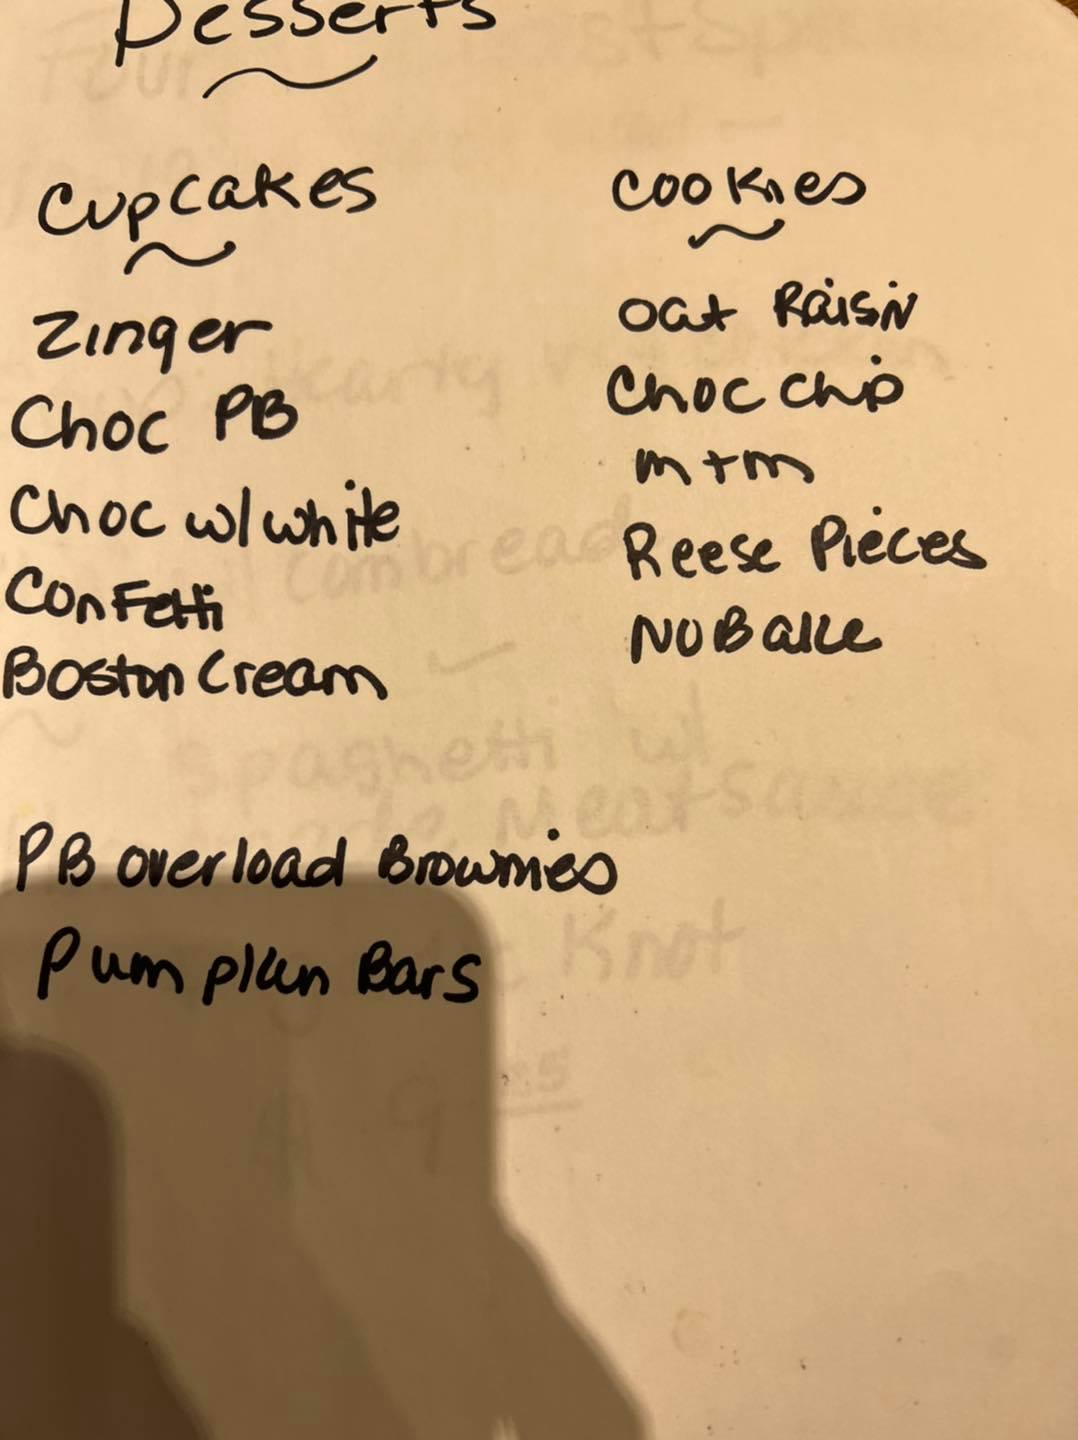 Desserts
Cupcakes
Zinger
Choc PB
Choc w/ white
Confetti
Boston Cream
Cookies
Oat Raisin
Choc chip
m+m
Reese Pieces
No Bake
PB overload Brownies
Pumpkin Bars
Hearty
Cornbread
Spaghetti w/
Meat Sauce
Knot